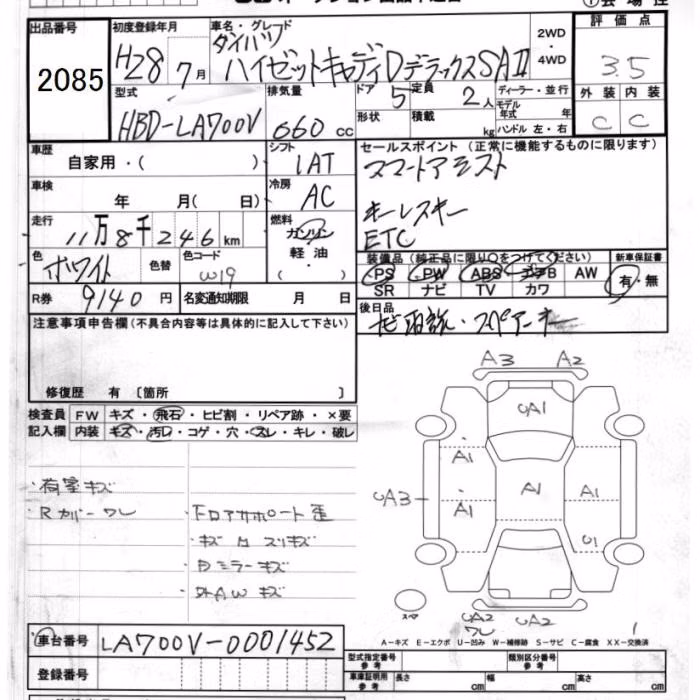 出品番号
2085
初度登録年月
H28年7月
車名・グレード
ダイハツ
ハイゼットキャディーDデラックスSAⅡ
2WD
・
4WD
評価点
3.5
型式
HBD-LA700V
排気量
660 cc
ドア
5
定員
2人
形状
積載
kg
ディーラー・並行
モデル年式 年
ハンドル 左・右
外装 内装
C C
車歴
自家用・( )
シフト
IAT
セールスポイント (正常に機能するものに限ります)
スマートアシスト
キーレスキー
ETC
車検
年 月( 日)
冷房
AC
走行
11万8千246km
燃料
ガソリン
軽油
・
( )
色
ホワイト
色替
色コード
W19
装備品 (純正品に限り○をつけてください)
PS PW ABS エアB AW
SR ナビ TV カワ
新車保証書
有・無
R券 9140円
名変通知期限 月 日
後日品
ナビ取説・スペアーキー
注意事項申告欄(不具合内容等は具体的に記入して下さい)
修復歴 有 [箇所 ]
検査員
記入欄
FW キズ・飛石・ヒビ割・リペア跡・×要
内装 キズ・汚レ・コゲ・穴・スレ・キレ・破レ
・荷室キズ
・Rカバーワレ
・FロアサポートÈ歪
・キズ スリキズ
・ミラーキズ
・AWキズ
A3 A2
UA1
A1
A1
A1
A1
UA3
U1
UA2
ワレ
UA2
スペア
A-キズ E-エクボ U-凹み W-補修跡 S-サビ C-腐食 XX-交換済
車台番号
LA700V-0001452
登録番号
型式指定番号
参考
類別区分番号
参考
車庫証明用
参考
長さ cm
幅 cm
高さ cm